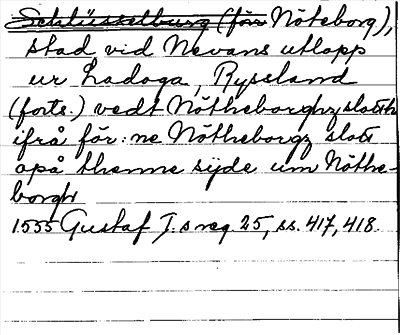 Schlüsselburg (förr Nöteborg),
stad vid Nevans utlopp
ur Ladoga, Ryssland
(forts.) vedt Nötheborghz slotth
ifrå för:ne Nötheborgz slott
opå thenne sijde um Nöthe-
borgh
1555 Gustaf I.s reg. 25, ss. 417, 418.